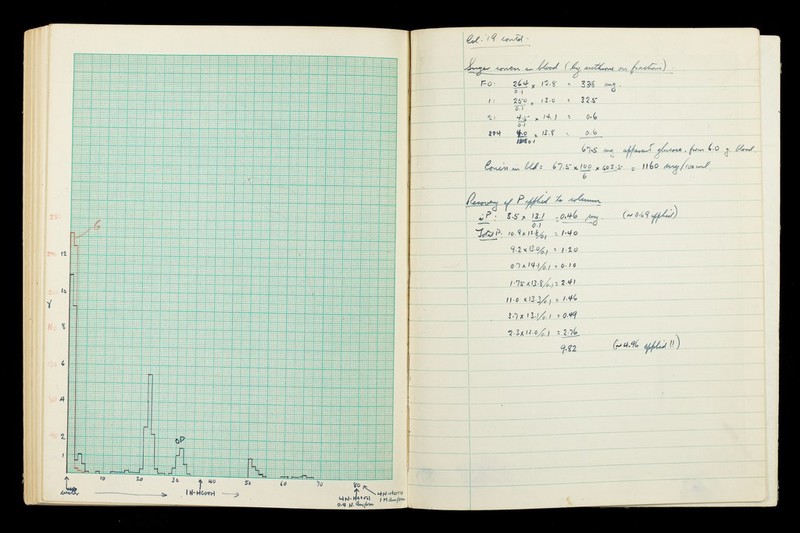 12
10
8
6
4
2
1
G
oP
10 20 30 40 50 60 70 80
water
1N-HCOOH
4N-HCOOH
4N-HCOOH
Col. 19 contd.
Sugar concn in blood (by anthrone on fractions):
F 0: 264/0.1 × 12.8 = 338 mg.
250/0.1 × 13.0 = 325
4.5/0.1 × 14.1 = 0.6
4.0 × 13.8 = 0.6
67.5 mg apparent glucose, from 6.0 g blood.
Conc'n in bld = 67.5 × 100/6 × = 1160 mg/100ml.
Recovery of P applied to column
iP: 3.5 × 13.1/0.1 = 0.46 mg. (~0.49 applied)
Total P: 10.9 × /0.1 = 1.40
9.2 × 13.0/0.1 = 1.20
0.7 × 14.1/0.1 = 0.10
1.75 × 13.8/0.1 = 2.41
11.0 × 13.3/0.1 = 1.46
3.7 × 13.1/0.1 = 0.49
× 12.0/0.1 = 2.76
9.82 (~4.96 applied!!)